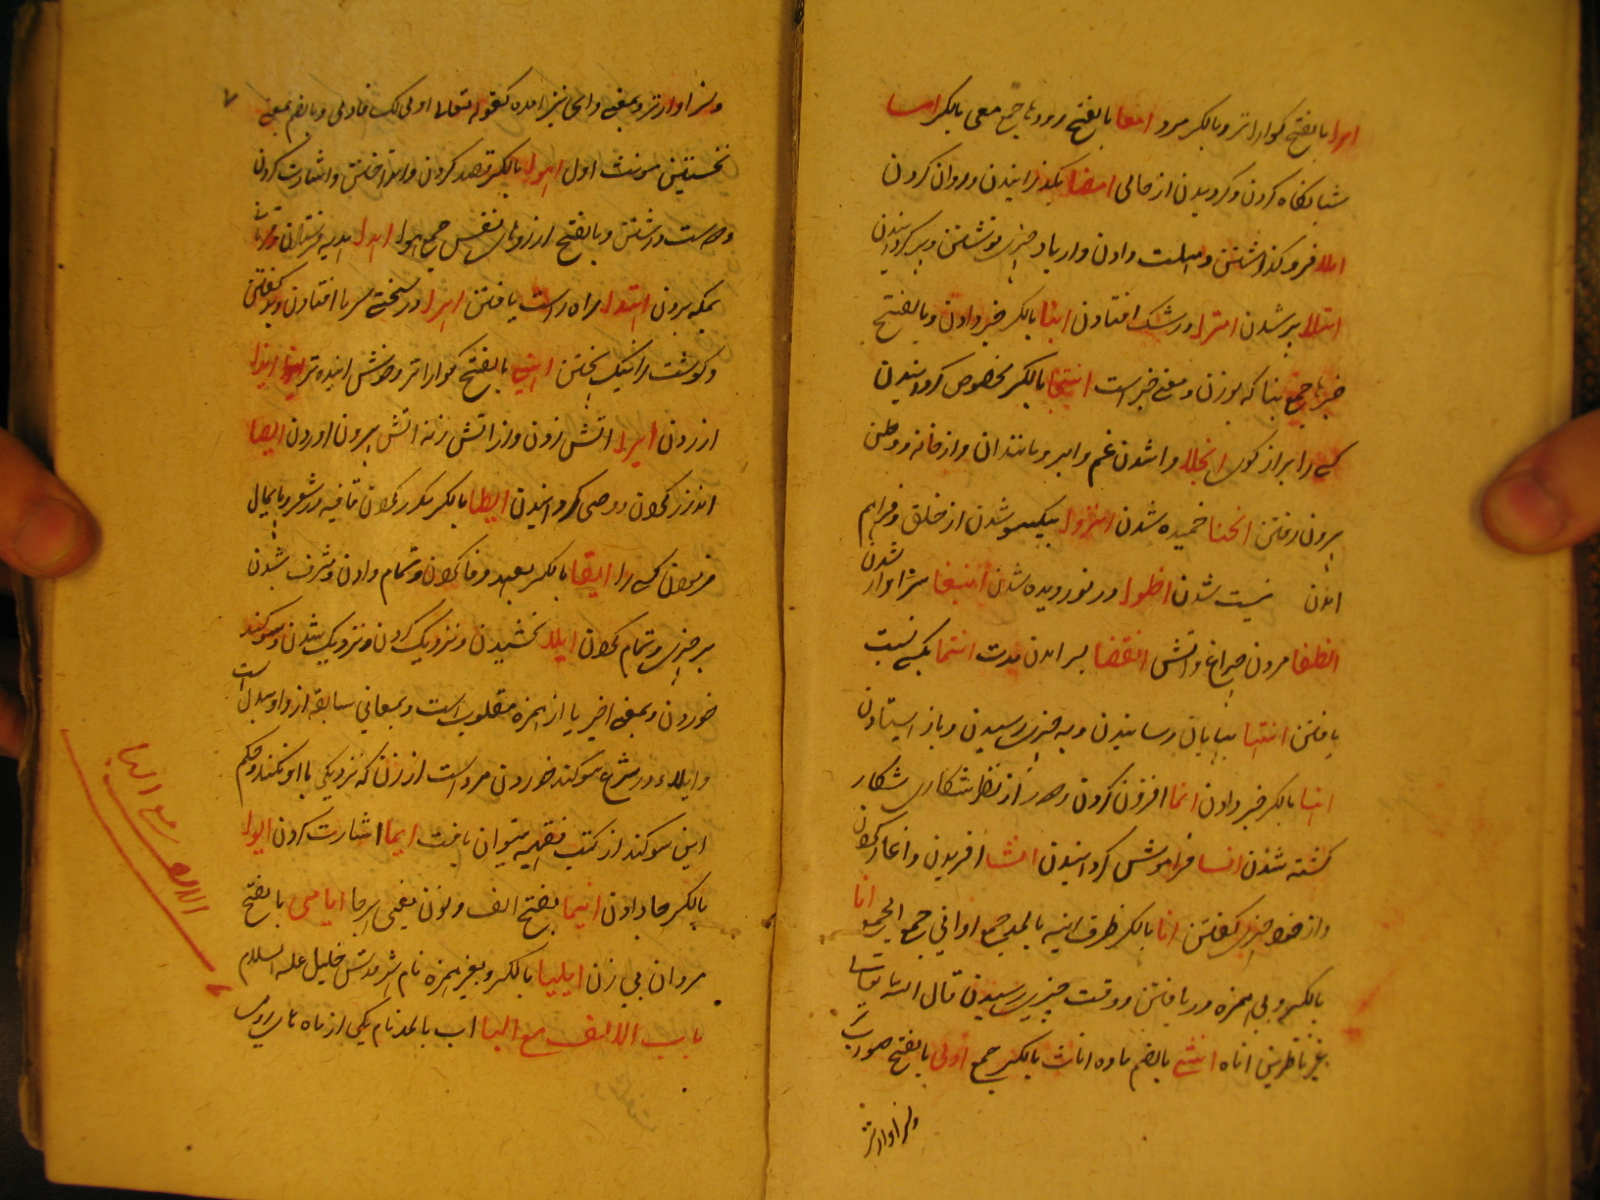 امرا بالفتح کوارا تر و بالکسر مرد امعا بالفتح رودها جمع معی بالکسر امسا
شبانکاه کردن و کردیدن از حالی امضا بکذرانیدن و روان کردن
املا فرو کذاشتن و مهلت دادن و از یاد چیزی نوشتن و پر کردانیدن
امتلا پر شدن امترا در شک افتادن انبا بالکسر خبر دادن و بالفتح
خبرها جمع نبا که بوزن و معنی خبر است انتجا بالکسر مخصوص کردانیدن
کسی را براز کوی انجلا وا شدن غم و ابر و مانند آن و از خانه و وطن
بیرون رفتن انحنا خمیده شدن انزوا بیکسو شدن از خلق و فراهم
امدن نیست شدن انطوا در نوردیده شدن انبغا سزاوار شدن
انطفا مردن چراغ و اتش انقضا بسر امدن مدت انتما بکسی نسبت
یافتن انتها بپایان رسانیدن و به چیزی رسیدن و باز ایستادن
انبا بالکسر خبر دادن انما افزون کردن و دور از نظر شکاری شکار
کشته شدن انسا فراموش کردانیدن انشا افریدن و اغاز کردن
و از خود چیزی کفتن انا بالکسر ظرف انیه بالمد جمع اوانی جمع الجمع انا
بالکسر و بی همزه دریافتن و وقت چیزی رسیدن قال الله تعالی
غیر ناظرین اناه انثی بالضم ماده اناث بالکسر جمع اولی بالفتح صواب تر
و سزاوارتر
و سزاوارتر و بمعنی وای نیز امده کقوله تعالی اولی لک فاولی و بالضم بمعنی
نخستین مونث اول اهوا بالکسر قصد کردن و انداختن و اشارت کردن
و دوست داشتن و بالفتح ارزوهای نفس جمع هوا اهدا هدیه فرستادن و قربانی
بمکه بردن اهتدا براه راست یافتن اهرا در سختی سرما افتادن و بد کفتن
و کوشت را نیک پختن اهنی بالفتح کوارا تر و خوش اینده تر ایذا
ازردن ایرا اتش زدن و از اتش زنه اتش بیرون اوردن ایصا
اندرز کردن و وصی کردانیدن ایطا بالکسر مکرر کردن قافیه در شعر و پایمال
فرمودن کسی را ایفا بالکسر بعهد وفا کردن و تمام دادن و مشرف شدن
بر چیزی و تمام کردن ایلا بخشیدن و نزدیک کردن و نزدیک شدن و سوکند
خوردن و بمعنی اخیر یا از همزه مقلوب است و بمعانی سابقه از واو مبدل است
و ایلاء در شرع سوکند خوردن مرد است از زن که نزدیکی با او نکند و حکم
این سوکند از کتب فقهیه میتوان یافت ایما اشارت کردن ایوا
بالکسر جا دادن اینما بفتح الف و نون یعنی هر جا ایامی بالفتح
مردان بی زن ایلیا بالکسر و بغیر همزه نام شهر قدس خلیل علیه السلام
باب الالف مع البا اب بالمد نام یکی از ماه های رومی
الالف مع البا